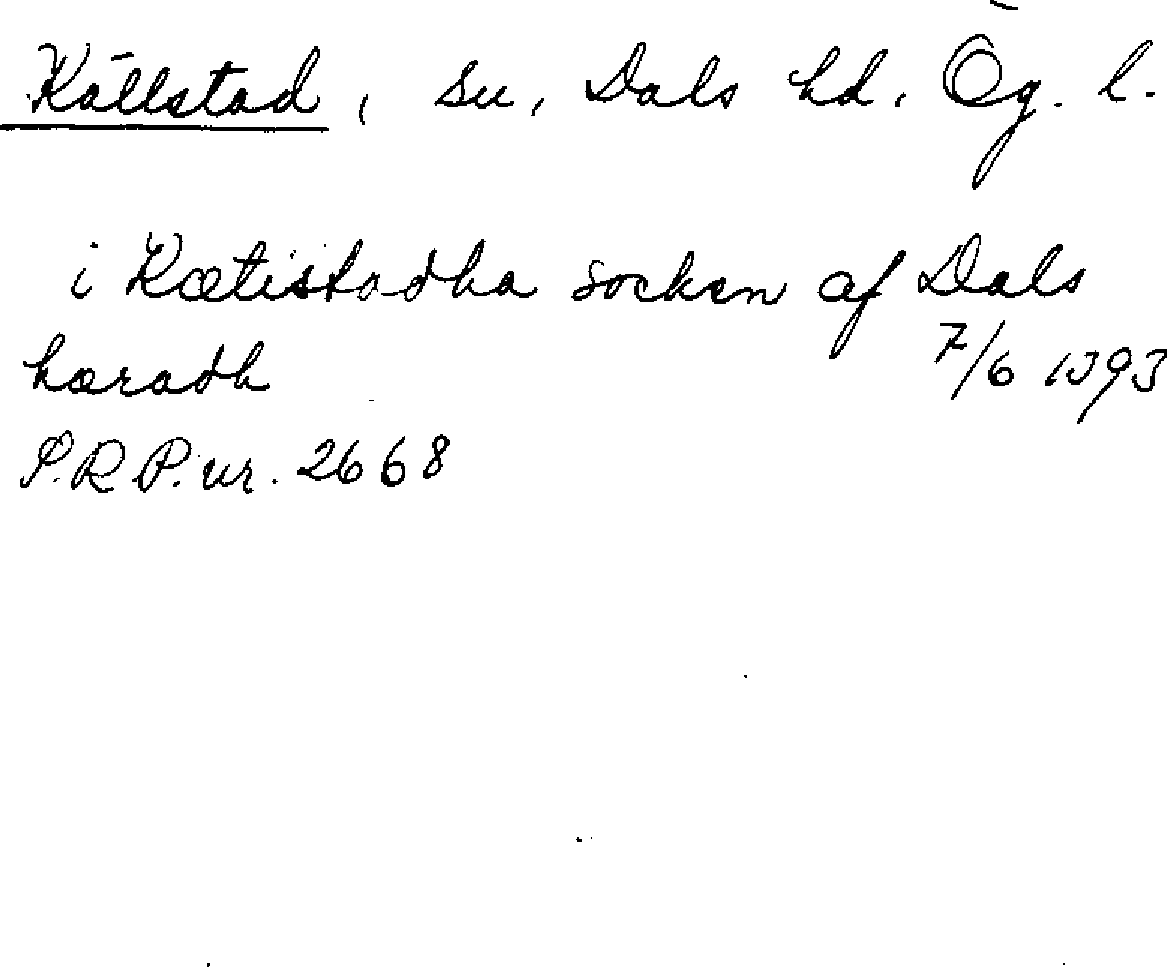 Källstad, sn, Dals hd. Ög. l.
i Kætilstadha socken af Dals
hæradh 7/6 1393
S.R.P. nr. 2668